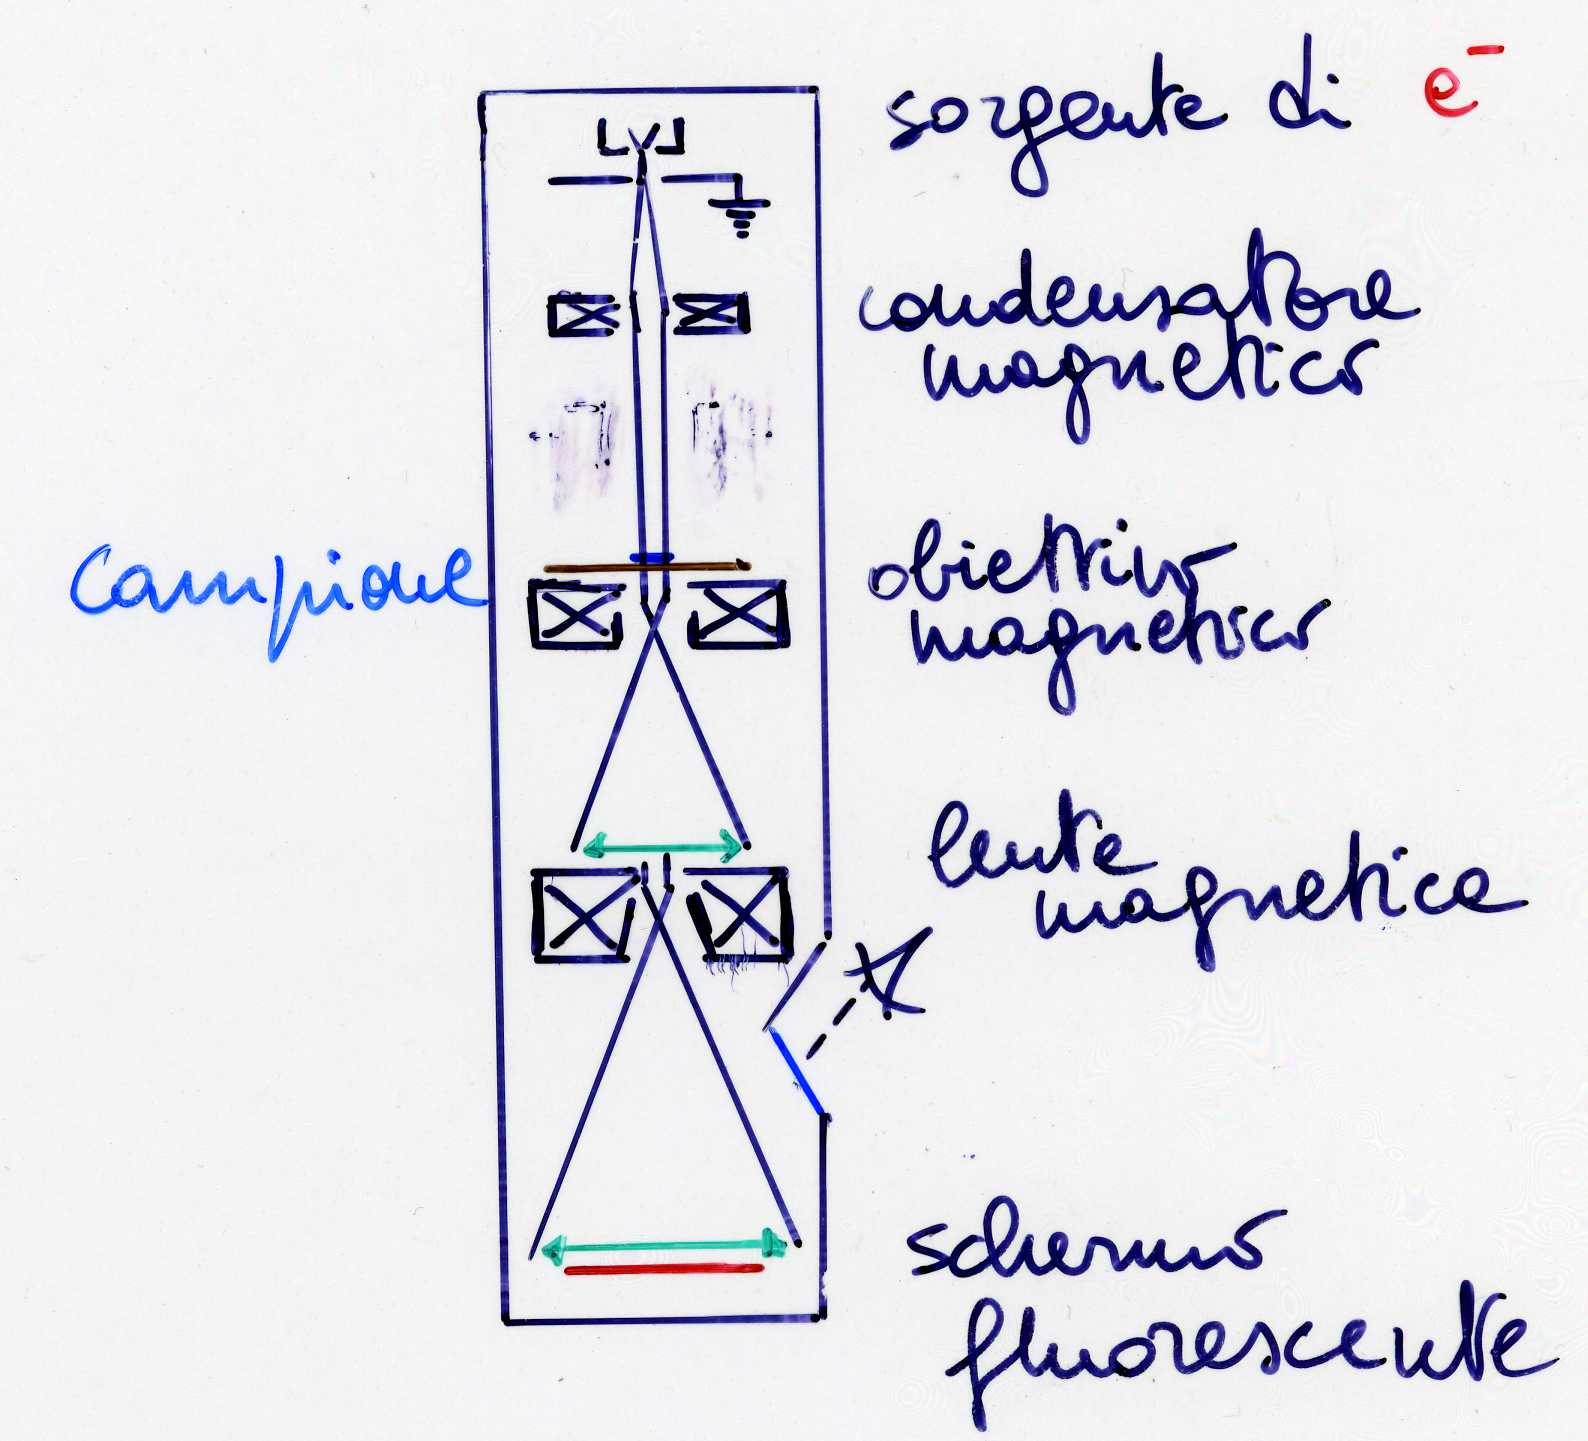 sorgente di e⁻
condensatore
magnetico
campione
obiettivo
magnetico
lente
magnetica
schermo
fluorescente